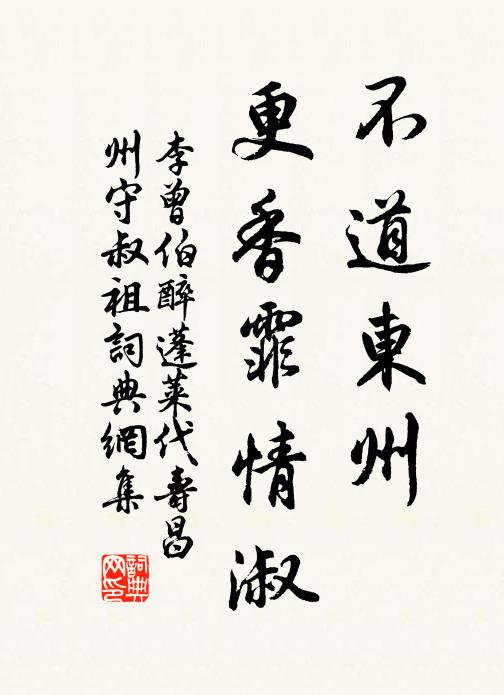 不道東州
更香霏情淑
李曾伯醉蓬萊代壽昌
州守叔祖詞典網集
詞典
网印